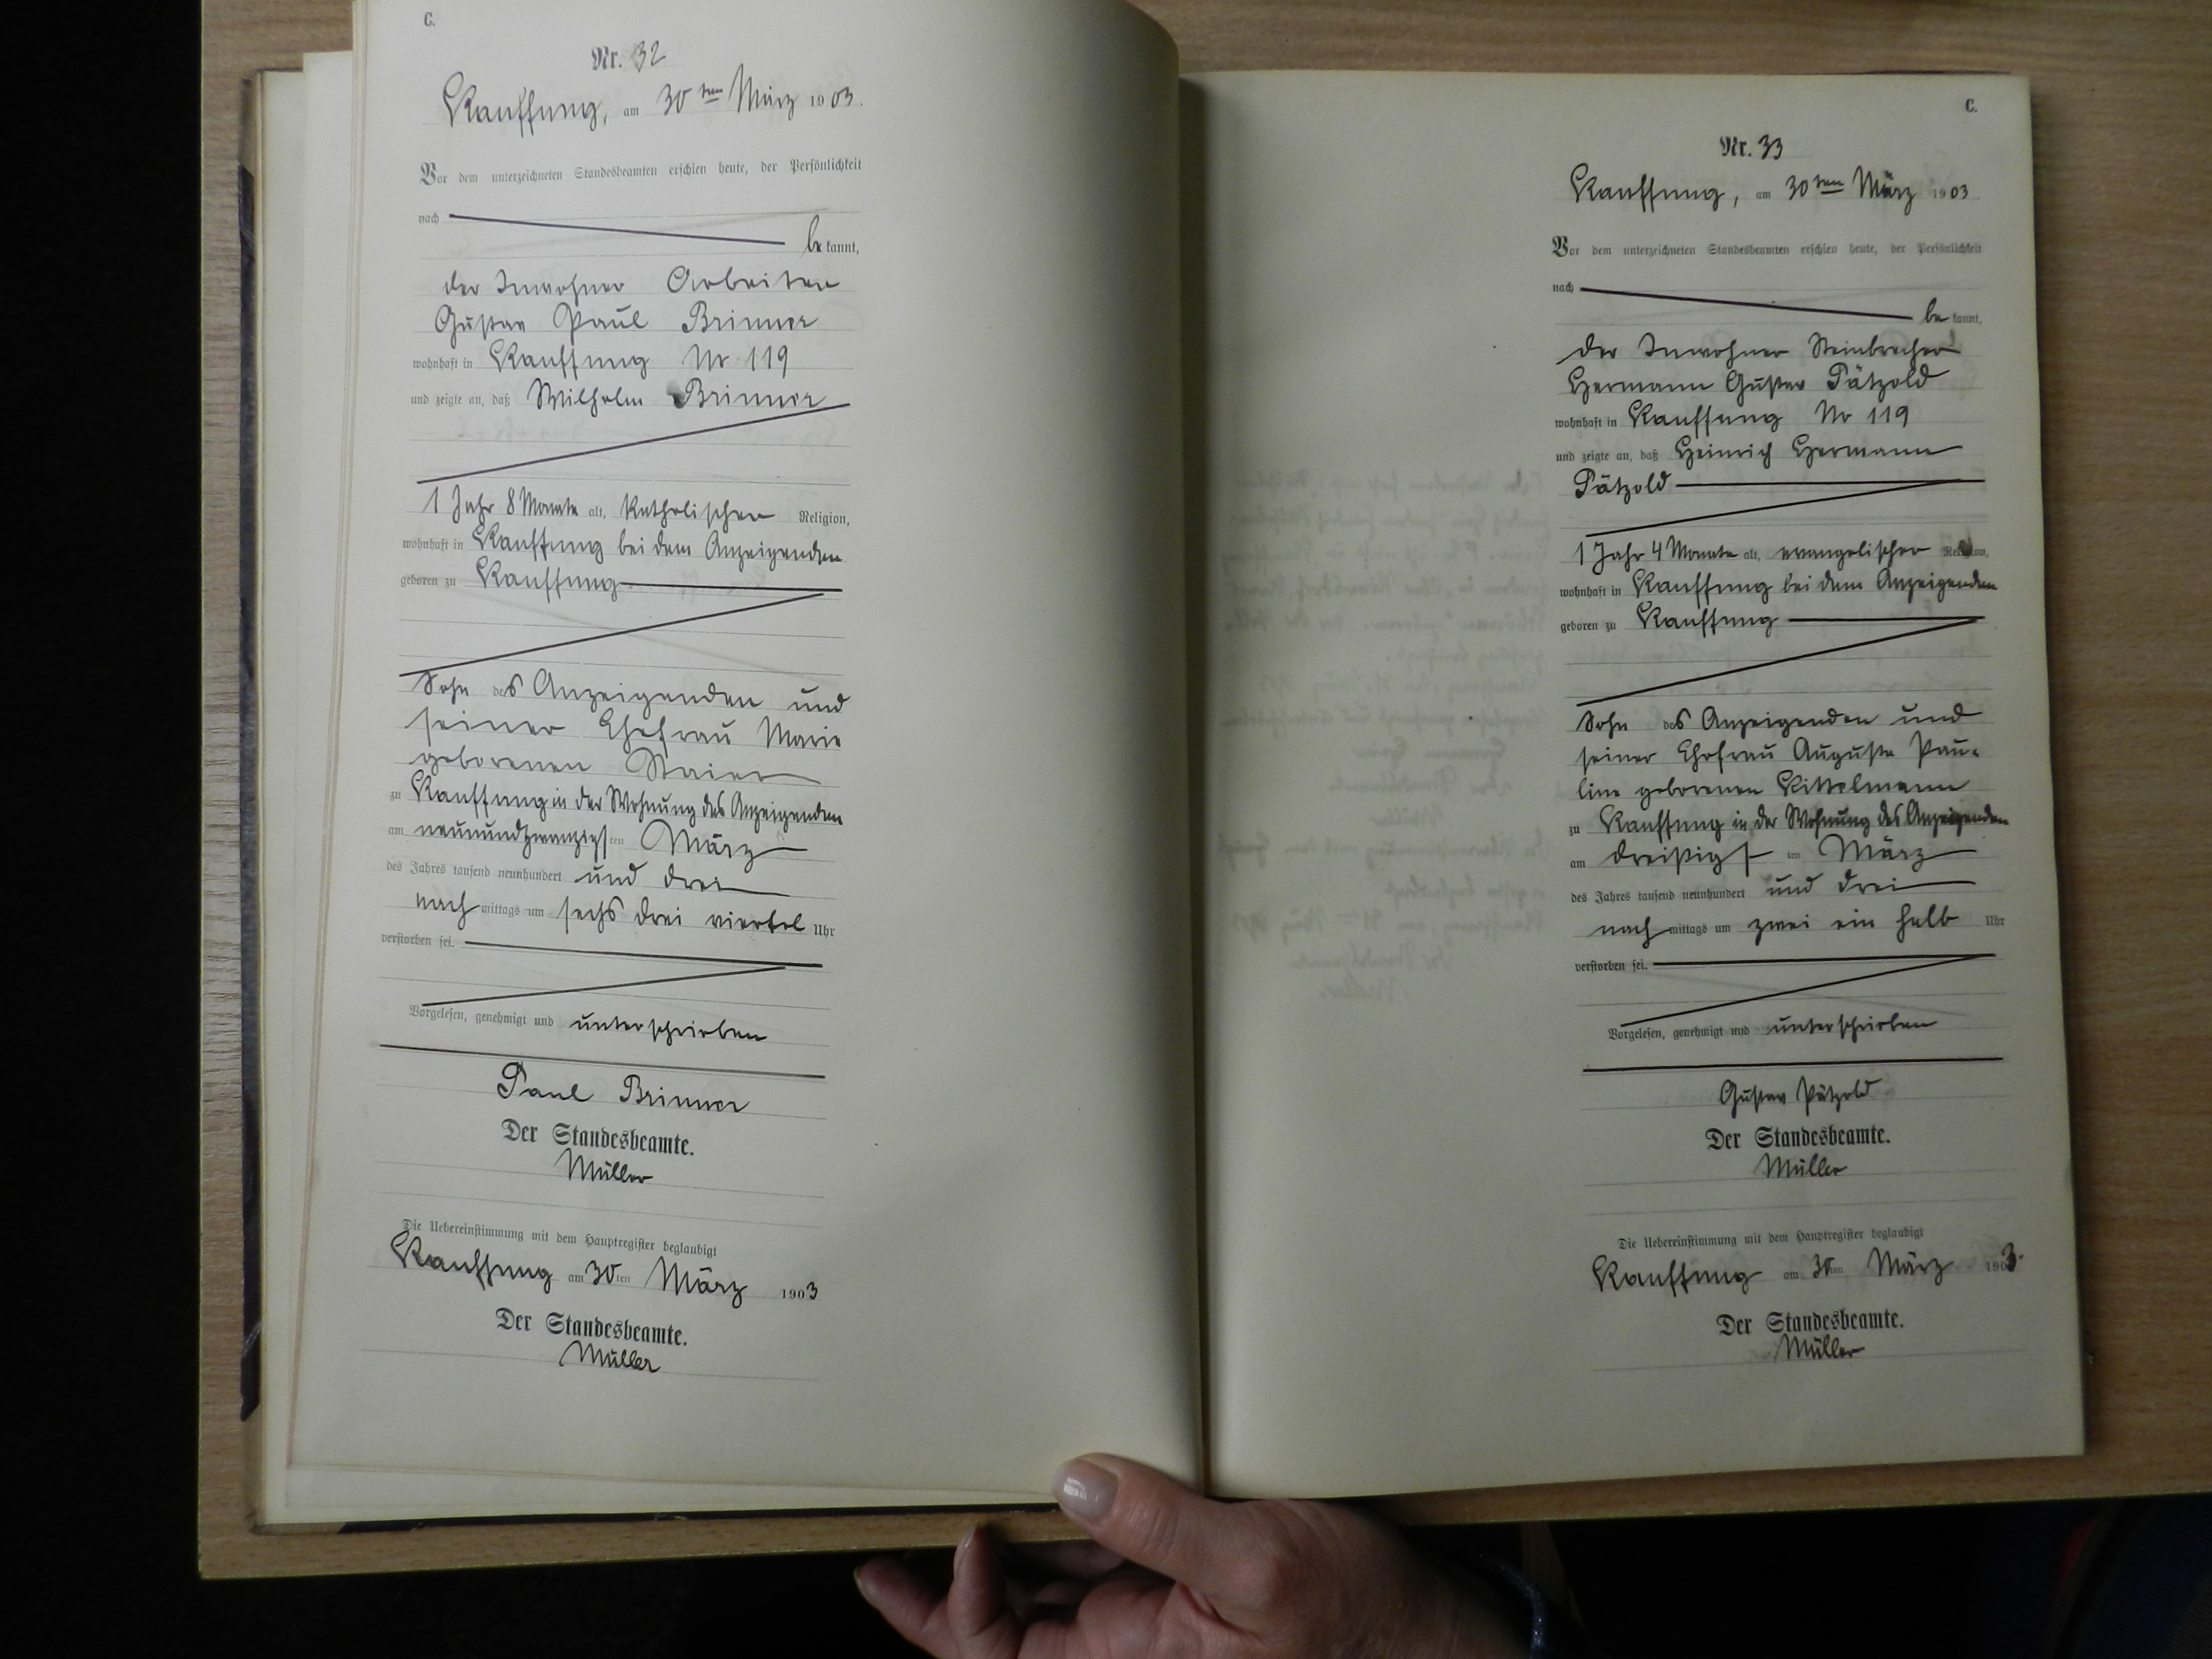 C.
Nr. 32
Kauffung, am 30ten März 1903.
Vor dem unterzeichneten Standesbeamten erschien heute, der Persönlichkeit
nach
be kannt,
der Inwohner Arbeiter
Gustav Paul Brinner
wohnhaft in Kauffung Nr 119
und zeigte an, daß Wilhelm Brinner
1 Jahr 8 Monate alt, katholischer Religion,
wohnhaft in Kauffung bei dem Anzeigenden
geboren zu Kauffung
Sohn des Anzeigenden und
seiner Ehefrau Marie
geborenen Maier
zu Kauffung in der Wohnung des Anzeigenden
am neunundzwanzigsten März
des Jahres tausend neunhundert und drei
nach mittags um sechs drei viertel Uhr
verstorben sei.
Vorgelesen, genehmigt und unterschrieben
Paul Brinner
Der Standesbeamte.
Müller
Die Uebereinstimmung mit dem Hauptregister beglaubigt
Kauffung am 30ten März 1903
Der Standesbeamte.
Müller
C.
Nr. 33
Kauffung, am 30ten März 1903
Vor dem unterzeichneten Standesbeamten erschien heute, der Persönlichkeit
nach
be kannt,
der Inwohner Steinbrecher
Hermann Gustav Pätzold
wohnhaft in Kauffung Nr 119
und zeigte an, daß Heinrich Hermann
Pätzold
1 Jahr 4 Monate alt, evangelischer Religion,
wohnhaft in Kauffung bei dem Anzeigenden
geboren zu Kauffung
Sohn des Anzeigenden und
seiner Ehefrau Auguste Pau-
line geborenen Kittelmann
zu Kauffung in der Wohnung des Anzeigenden
am dreißigsten März
des Jahres tausend neunhundert und drei
nach mittags um zwei ein halb Uhr
verstorben sei.
Vorgelesen, genehmigt und unterschrieben
Gustav Pätzold
Der Standesbeamte.
Müller
Die Uebereinstimmung mit dem Hauptregister beglaubigt
Kauffung am 30ten März 1903.
Der Standesbeamte.
Müller